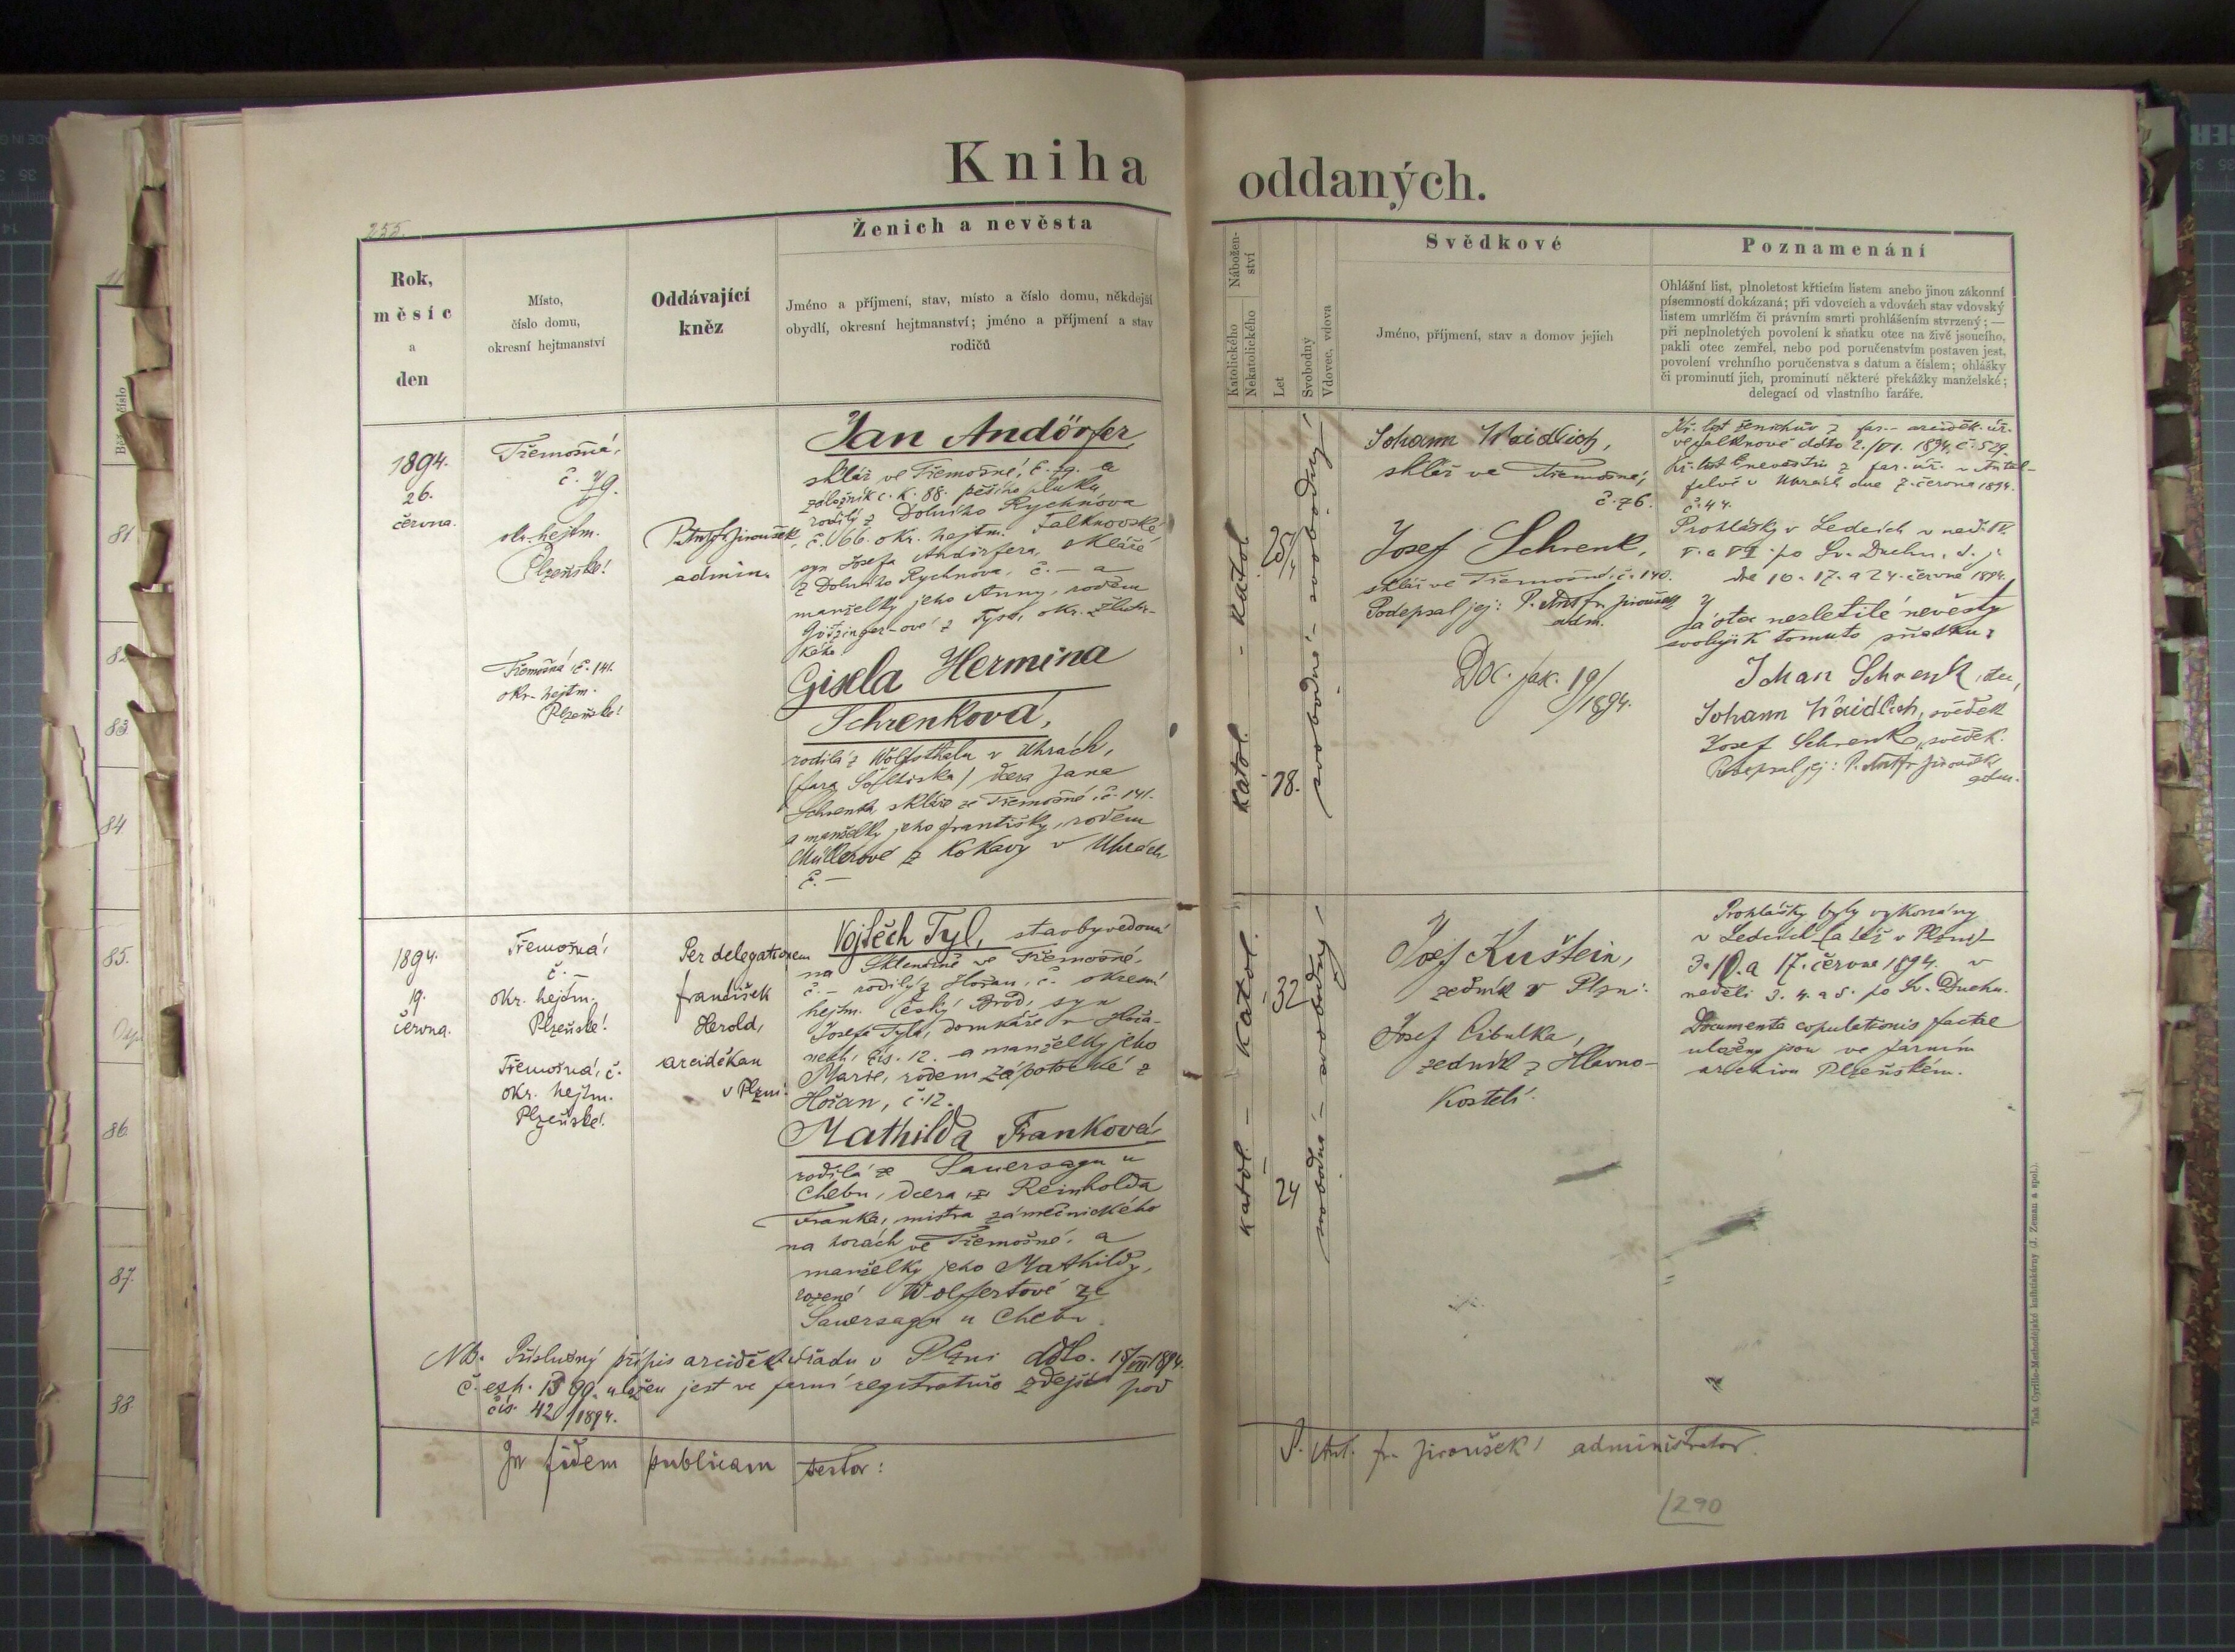 Kniha oddaných.
255.
Rok,
měsíc
a
den
Místo,
číslo domu,
okresní hejtmanství
Oddávající
kněz
Ženich a nevěsta
Jméno a příjmení, stav, místo a číslo domu, někdejší
obydlí, okresní hejtmanství; jméno a příjmení a stav
rodičů
Nábožen-
ství
Katolického
Nekatolického
Let
Svobodný
Vdovec, vdova
Svědkové
Jméno, příjmení, stav a domov jejich
Poznamenání
Ohlášní list, plnoletost křticím listem anebo jinou zákonní
písemností dokázaná; při vdovcích a vdovách stav vdovský
listem umrlčím či právním smrti prohlášením stvrzený; —
při neplnoletých povolení k sňatku otce na živě jsoucího,
pakli otec zemřel, nebo pod poručenstvím postaven jest,
povolení vrchního poručenstva s datum a číslem; ohlášky
či prominutí jich, prominutí některé překážky manželské;
delegací od vlastního faráře.
1894.
26.
června.
Třemošná,
č. 79.
okr. hejtm.
Plzeňské!
P. Ant. fr. Jiroušek,
admin.
Jan Andörfer
sklář ve Třemošné, č. 79. a
záložník c. k. 88. pěšího pluku
rodilý z Dolního Rychnova
č. 66. okr. hejtm. Falknovské
syn Josefa Andörfera, skláře
z Dolního Rychnova, č. — a
manželky jeho Anny, rodem
Götzinger-ové z
kého
Třemošná č. 141.
okr. hejtm.
Plzeňské!
Gisela Hermina
Schrenková,
rodilá z Wolfsthalu v Uhrách,
dcera Jana
Schrenka, skláře ze Třemošné, č. 141.
a manželky jeho Františky, rodem
Müllerové z Kokavy v Uhrách
č. —
katol. - katol.
25/4
18.
svobodná - svobodný -
Johann Waidlich,
sklář ve Třemošné,
č. 76.
Josef Schrenk,
sklář ve Třemošné, č. 140.
Podepsal jej: P. Ant. fr. Jiroušek
adm.
Doc. fasc. 19/
1894.
Kř. list ženichův z far. arciděk. úř.
ve Falknově ddto 2./VI. 1894, č. 529.
Kř. list nevěstin z far. úř. v
v Uhrách dne 7. června 1894.
č. 44.
Prohlášky v Ledcích v neď. IV.
V. a VI. po Sv. Duchu, t. j.
dne 10. 17. a 24. června 1894.
Já otec nezletilé nevěsty
svoluji k tomuto sňatku:
Johan Schrenk, otec,
Johann Waidlich, svědek
Josef Schrenk, svědek.
Podepsal jej: P. Ant. fr. Jiroušek
adm.
1894.
19.
června.
Třemošná,
č. —
okr. hejtm.
Plzeňské!
Třemošná, č.
okr. hejtm.
Plzeňské!
Per delegationem
František
Herold,
arciděkan
v Plzni.
Vojtěch Tyl, stavbyvedoucí
na Sklenárně ve Třemošné,
č. — rodilý z Hořan, č. okresní
hejtm. Český Brod, syn
Josefa Tyla, domkáře v Hořa-
nech, čís. 12. a manželky jeho
Marie, rodem Zápotocké z
Hořan, č. 12.
Mathilda Franková
rodilá ze Sauersagu u
Chebu, dcera Reinholda
Franka, mistra zámečnického
na horách ve Třemošné, a
manželky jeho Mathildy,
rozené Wolfertové ze
Sauersagu u Chebu.
katol. - katol.
32
24
svobodná - svobodný -
Josef Kuštein,
zedník v Plzni.
Josef Cibulka,
zedník z Hlavno-
Kostelí.
Prohlášky byly vykonány
v Ledcích (a též v Plzni)
3. 10. a 17. června 1894. v
neděli 3. 4. a 5. po Sv. Duchu.
Documenta copulationis factae
uložena jsou ve farním
archivu Plzeňském.
NB. Příslušný přípis arciděk. úřadu v Plzni ddto. 18/VII 1894.
č. exh. 1590. uložen jest ve farní registratuře zdejší pod
čís. 42/1894.
In fidem publicam testor:
P. Ant. fr. Jiroušek, administrator.
290
Tisk Cyrillo-Methodějské knihtiskárny (J. Zeman a spol.).
81
82
83
84.
85.
86.
87.
88